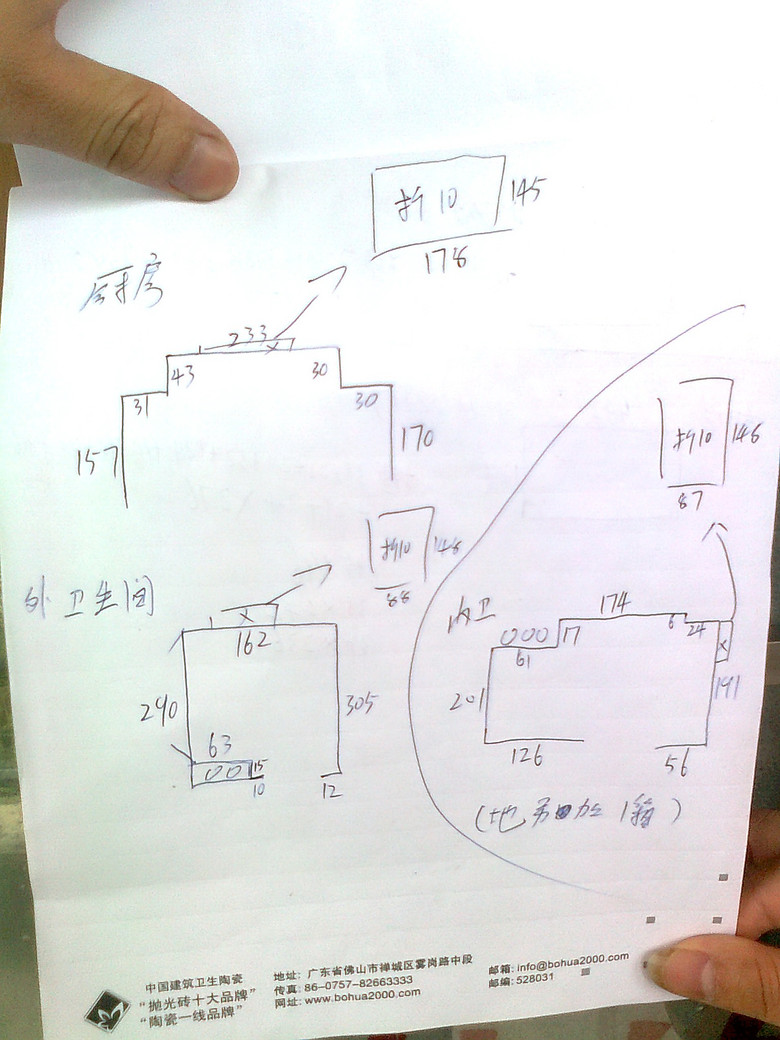 折10
145
178
厨房
233
43
30
31
30
157
170
折10
146
87
外卫生间
折10
148
88
162
290
305
63
15
10
12
内卫
174
6
24
17
61
201
191
126
56
(地另加1箱)
中国建筑卫生陶瓷
“抛光砖十大品牌”
“陶瓷一线品牌”
地址: 广东省佛山市禅城区雾岗路中段
传真: 86-0757-82663333
网址: www.bohua2000.com
邮箱: info@bohua2000.com
邮编: 528031